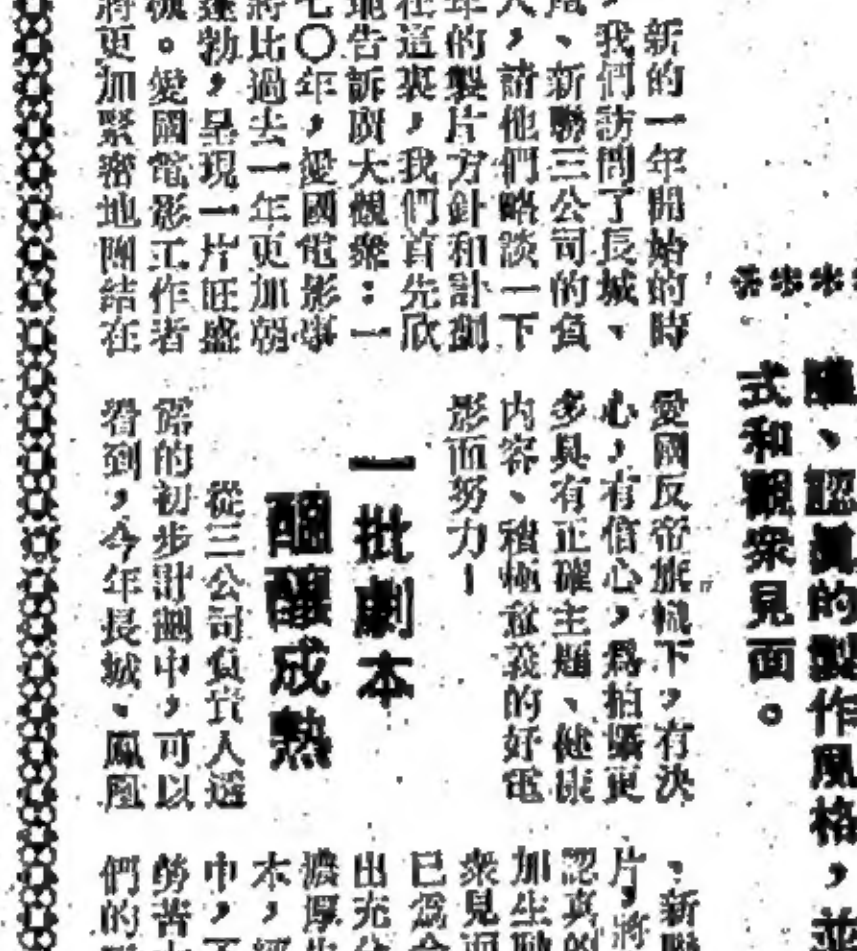 、認眞的製作風格，並
式和觀衆見面。
新的一年開始的時
，我們訪問了長城、
、新聯三公司的負
人，請他們略談一下
年的製片方針和計劃
在這裏，我們首先欣
地告訴廣大觀衆：一
七〇年，愛國電影事
將比過去一年更加朝
蓬勃，呈現一片旺盛
。愛國電影工作者
將更加緊密地團結在
愛國反帝旗幟下，有決
心，有信心，爲拍攝更
多具有正確主題、健康
內容、積極意義的好電
影而努力！
一批劇本
醞釀成熟
從三公司負責人透
露的初步計劃中，可以
看到，今年長城、鳳凰
、新聯
片，將
認真的
加生動
衆見面
已爲
出充
濃厚
本，
中，
勞苦
們的